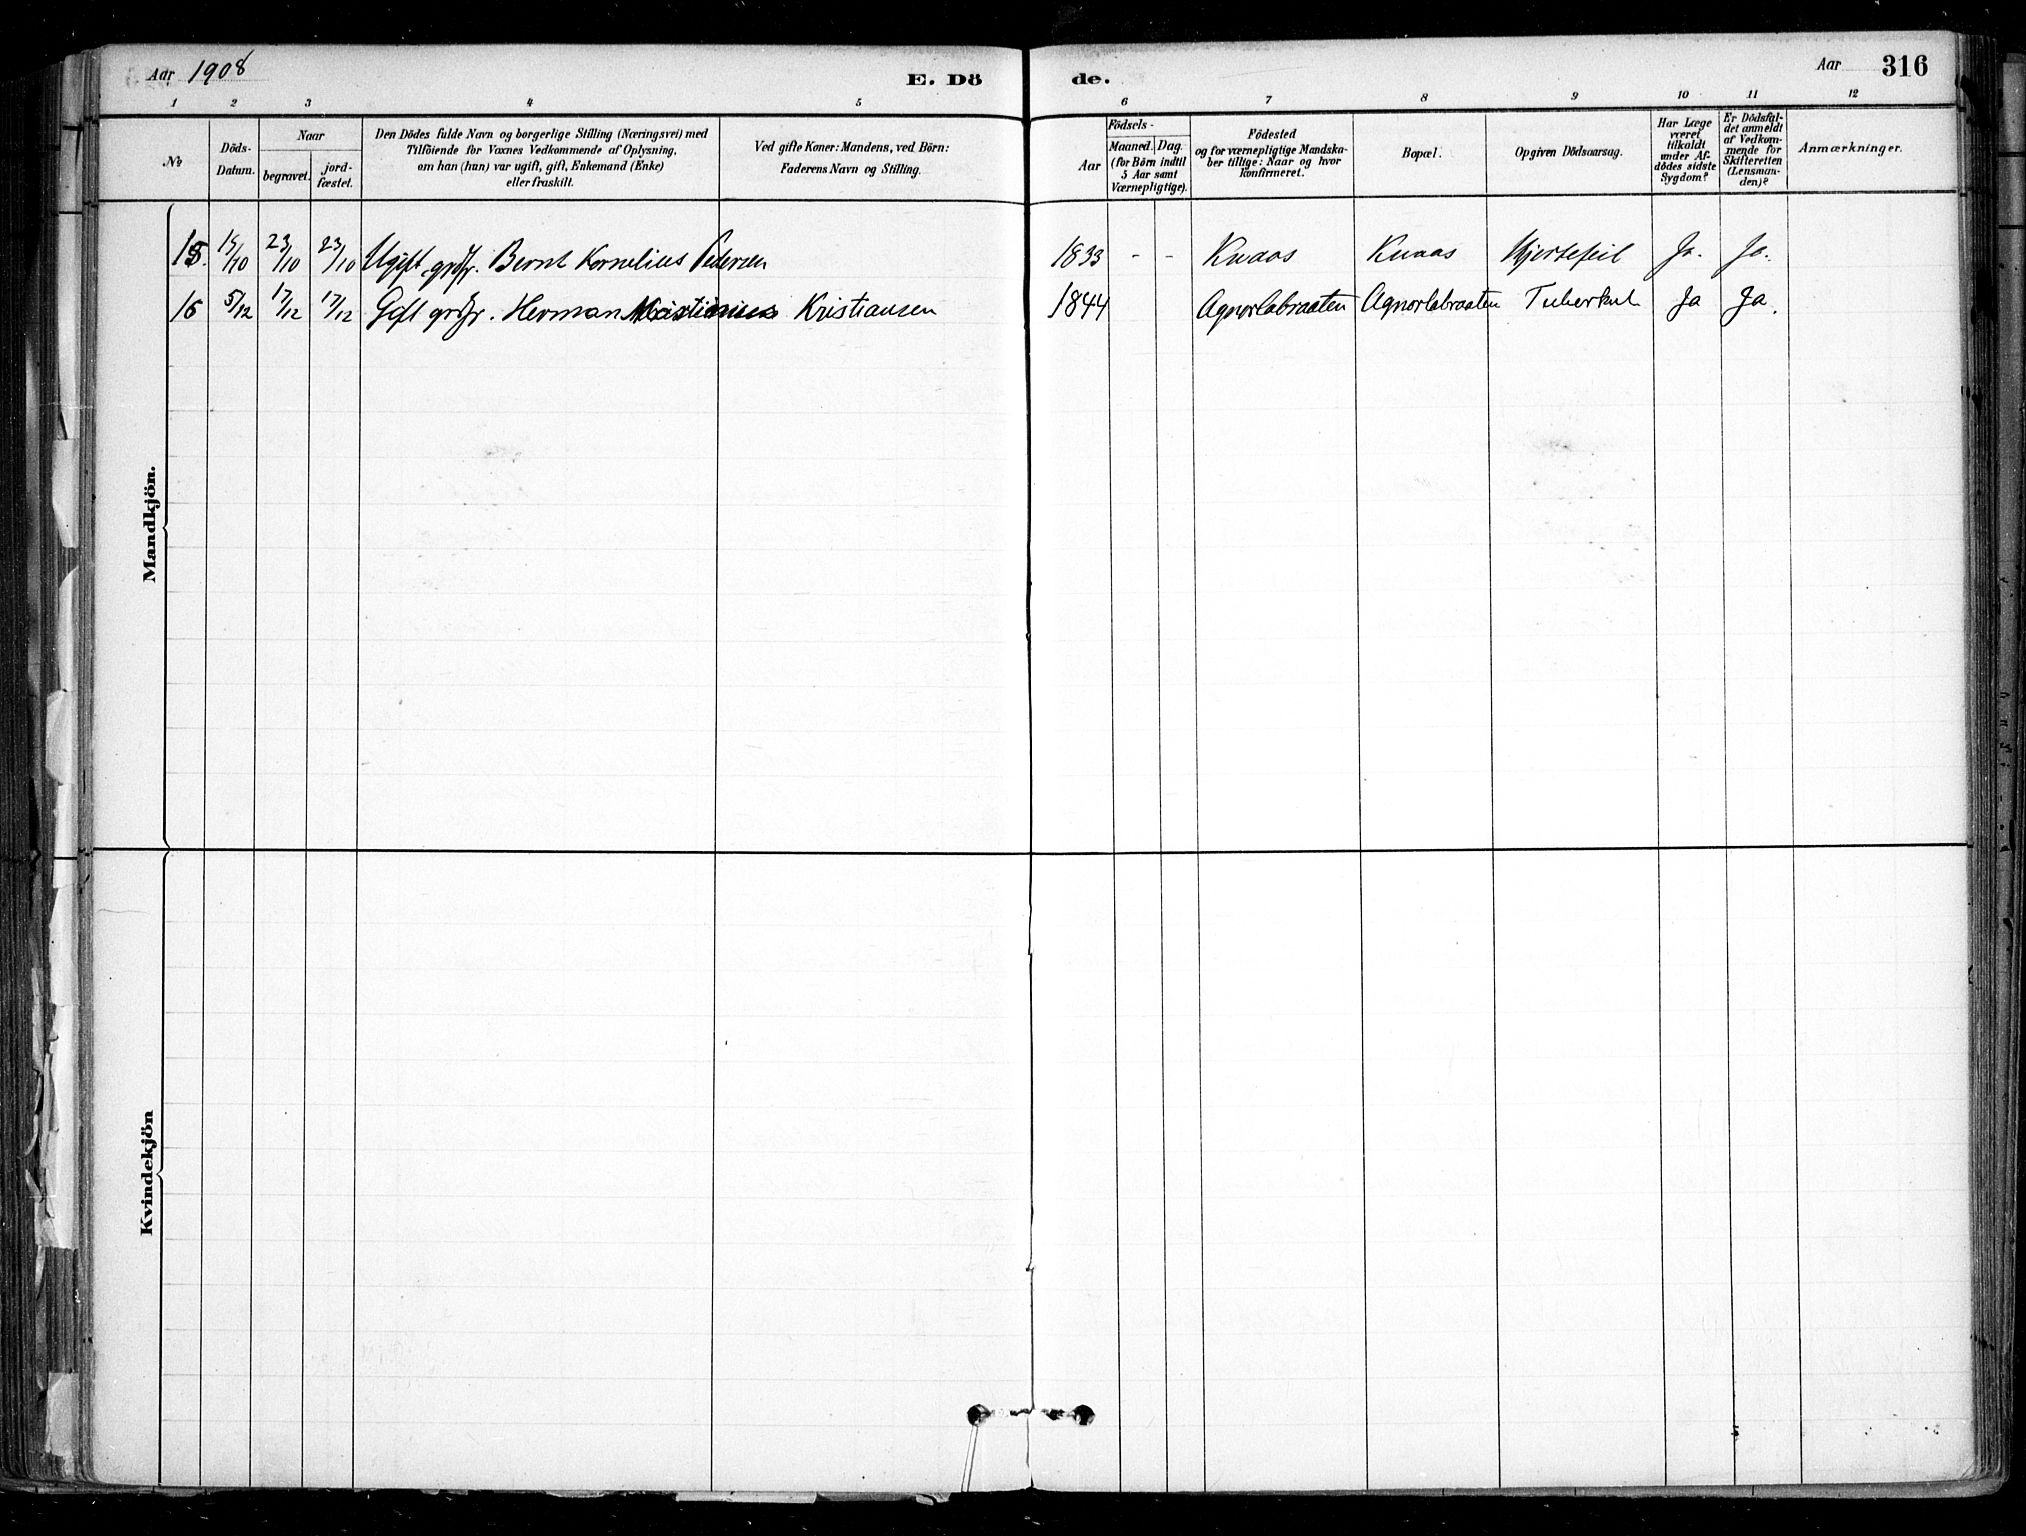 Aar 1908
E. Dö
de.
Aar
316
1 2 3 4 5 6 7 8 9 10 11 12
No
Döds-
Datum.
Naar
begravet.
jord-
fæstet.
Den Dödes fulde Navn og borgerlige Stilling (Næringsvei) med
Tilföiende for Voxnes Vedkommende af Oplysning,
om han (hun) var ugift, gift, Enkemand (Enke)
eller fraskilt.
Ved gifte Koner: Mandens, ved Börn:
Faderens Navn og Stilling.
Födsels-
Aar
Maaned. Dag.
(for Börn indtil
5 Aar samt
Værnepligtige).
Födested
og for værnepligtige Mandska-
ber tillige: Naar og hvor
konfirmeret.
Bopæl.
Opgiven Dödsaarsag.
Har Læge
været
tilkaldt
under Af-
dödes sidste
Sygdom?
Er Dödsfal-
det anmeldt
af Vedkom-
mende for
Skifteretten
(Lensman-
den)?
Anmærkninger.
Mandkjön.
15. 15/10 23/10 23/10 Ugift grdfr. Bernt Kornelius Pedersen 1833 - - Knaos Knaas Hjertefeil Ja. Ja.
16 5/12 17/12 17/12 Gift grdfr. Herman Kristiansen 1844 Agnorlabraaten Agnorlabraaten Tuberkul Ja Ja.
Kvindekjön